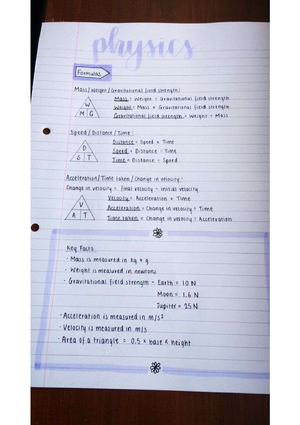 physics
Formulas
Mass / Weight / Gravitational field strength:
W
M G
Mass = Weight ÷ Gravitational field strength
Weight = Mass × Gravitational field strength
Gravitational field strength = Weight ÷ Mass
Speed / Distance / Time:
D
S T
Distance = Speed × Time
Speed = Distance ÷ Time
Time = Distance ÷ Speed
Acceleration / Time taken / Change in velocity:
Change in velocity = final velocity - initial velocity
V
A T
Velocity = Acceleration × Time
Acceleration = Change in velocity ÷ Time
Time taken = Change in velocity ÷ Acceleration
Key Facts
· Mass is measured in kg + g
· Weight is measured in newtons
· Gravitational field strength - Earth = 10 N
Moon = 1.6 N
Jupiter = 25 N
· Acceleration is measured in m/s²
· Velocity is measured in m/s
· Area of a triangle = 0.5 × base × height